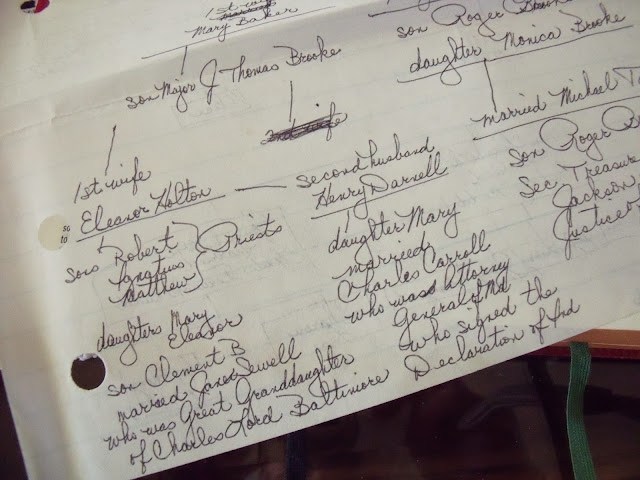 1st wife
Mary Baker
son Major J Thomas Brooke
son Roger Brooke
daughter Monica Brooke
married Michael
son Roger
Sec Treasur
Jackson
Justice
1st wife
Eleanor Holton
sons Robert
Ignatius
Matthew
Priests
daughters Mary
Eleanor
son Clement B
married Jane Sewell
who was Great Granddaughter
of Charles Lord Baltimore
2nd wife
second husband
Henry Darnell
daughter Mary
married
Charles Carroll
who was Attorney
General of Md
who signed the
Declaration of Ind
so
to